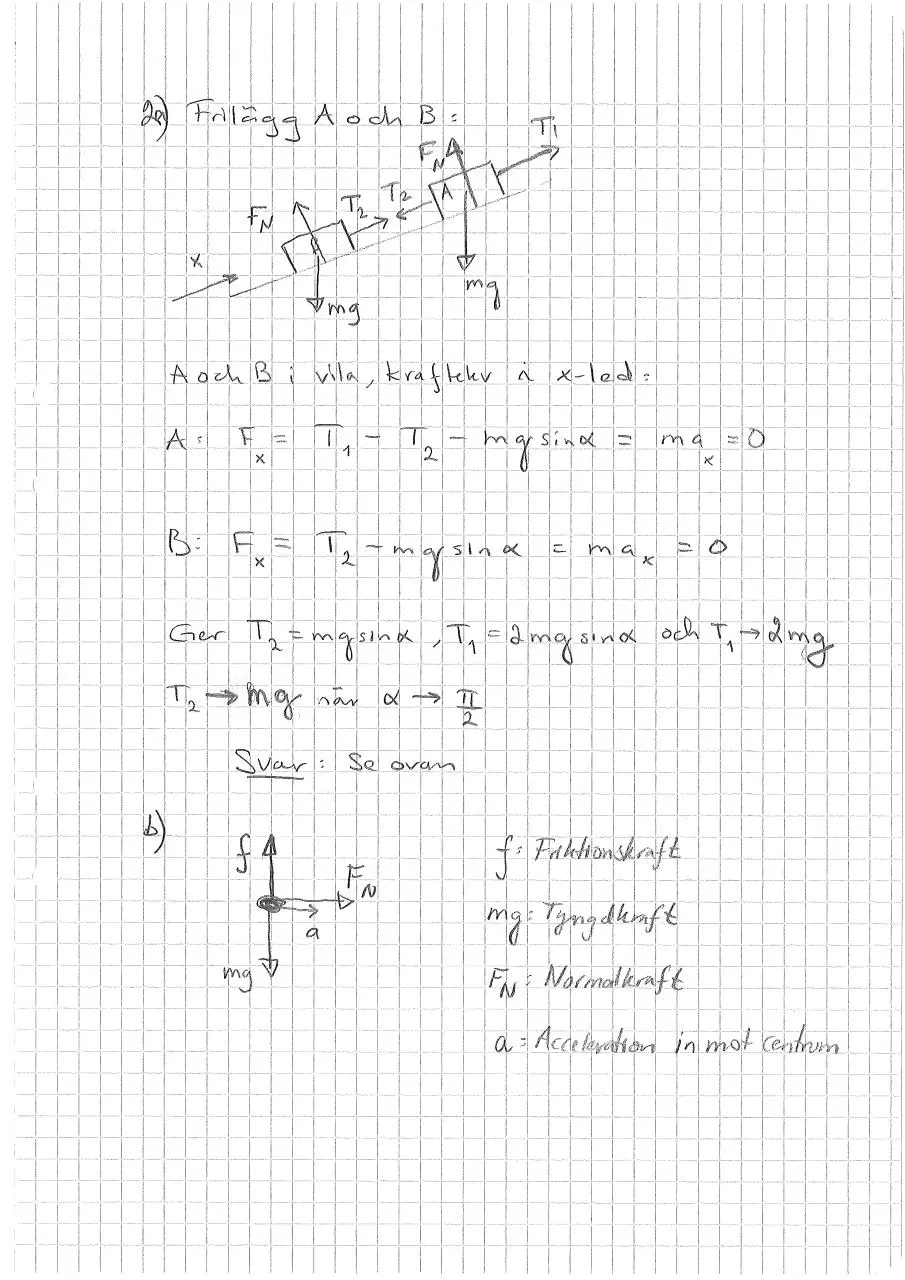 2a) Frilägg A och B:
T1
FN
A
T2
T2
FN
x
mg
mg
A och B i vila, kraftekv i x-led:
A: Fx = T1 - T2 - mg sinα = max = 0
B: Fx = T2 - mg sin α = max = 0
Ger T2 = mg sinα, T1 = 2mg sinα och T1 → 2mg
T2 → mg när α → π/2
Svar: Se ovan
b)
f
FN
a
mg
f: Friktionskraft
mg: Tyngdkraft
FN: Normalkraft
a: Acceleration in mot centrum